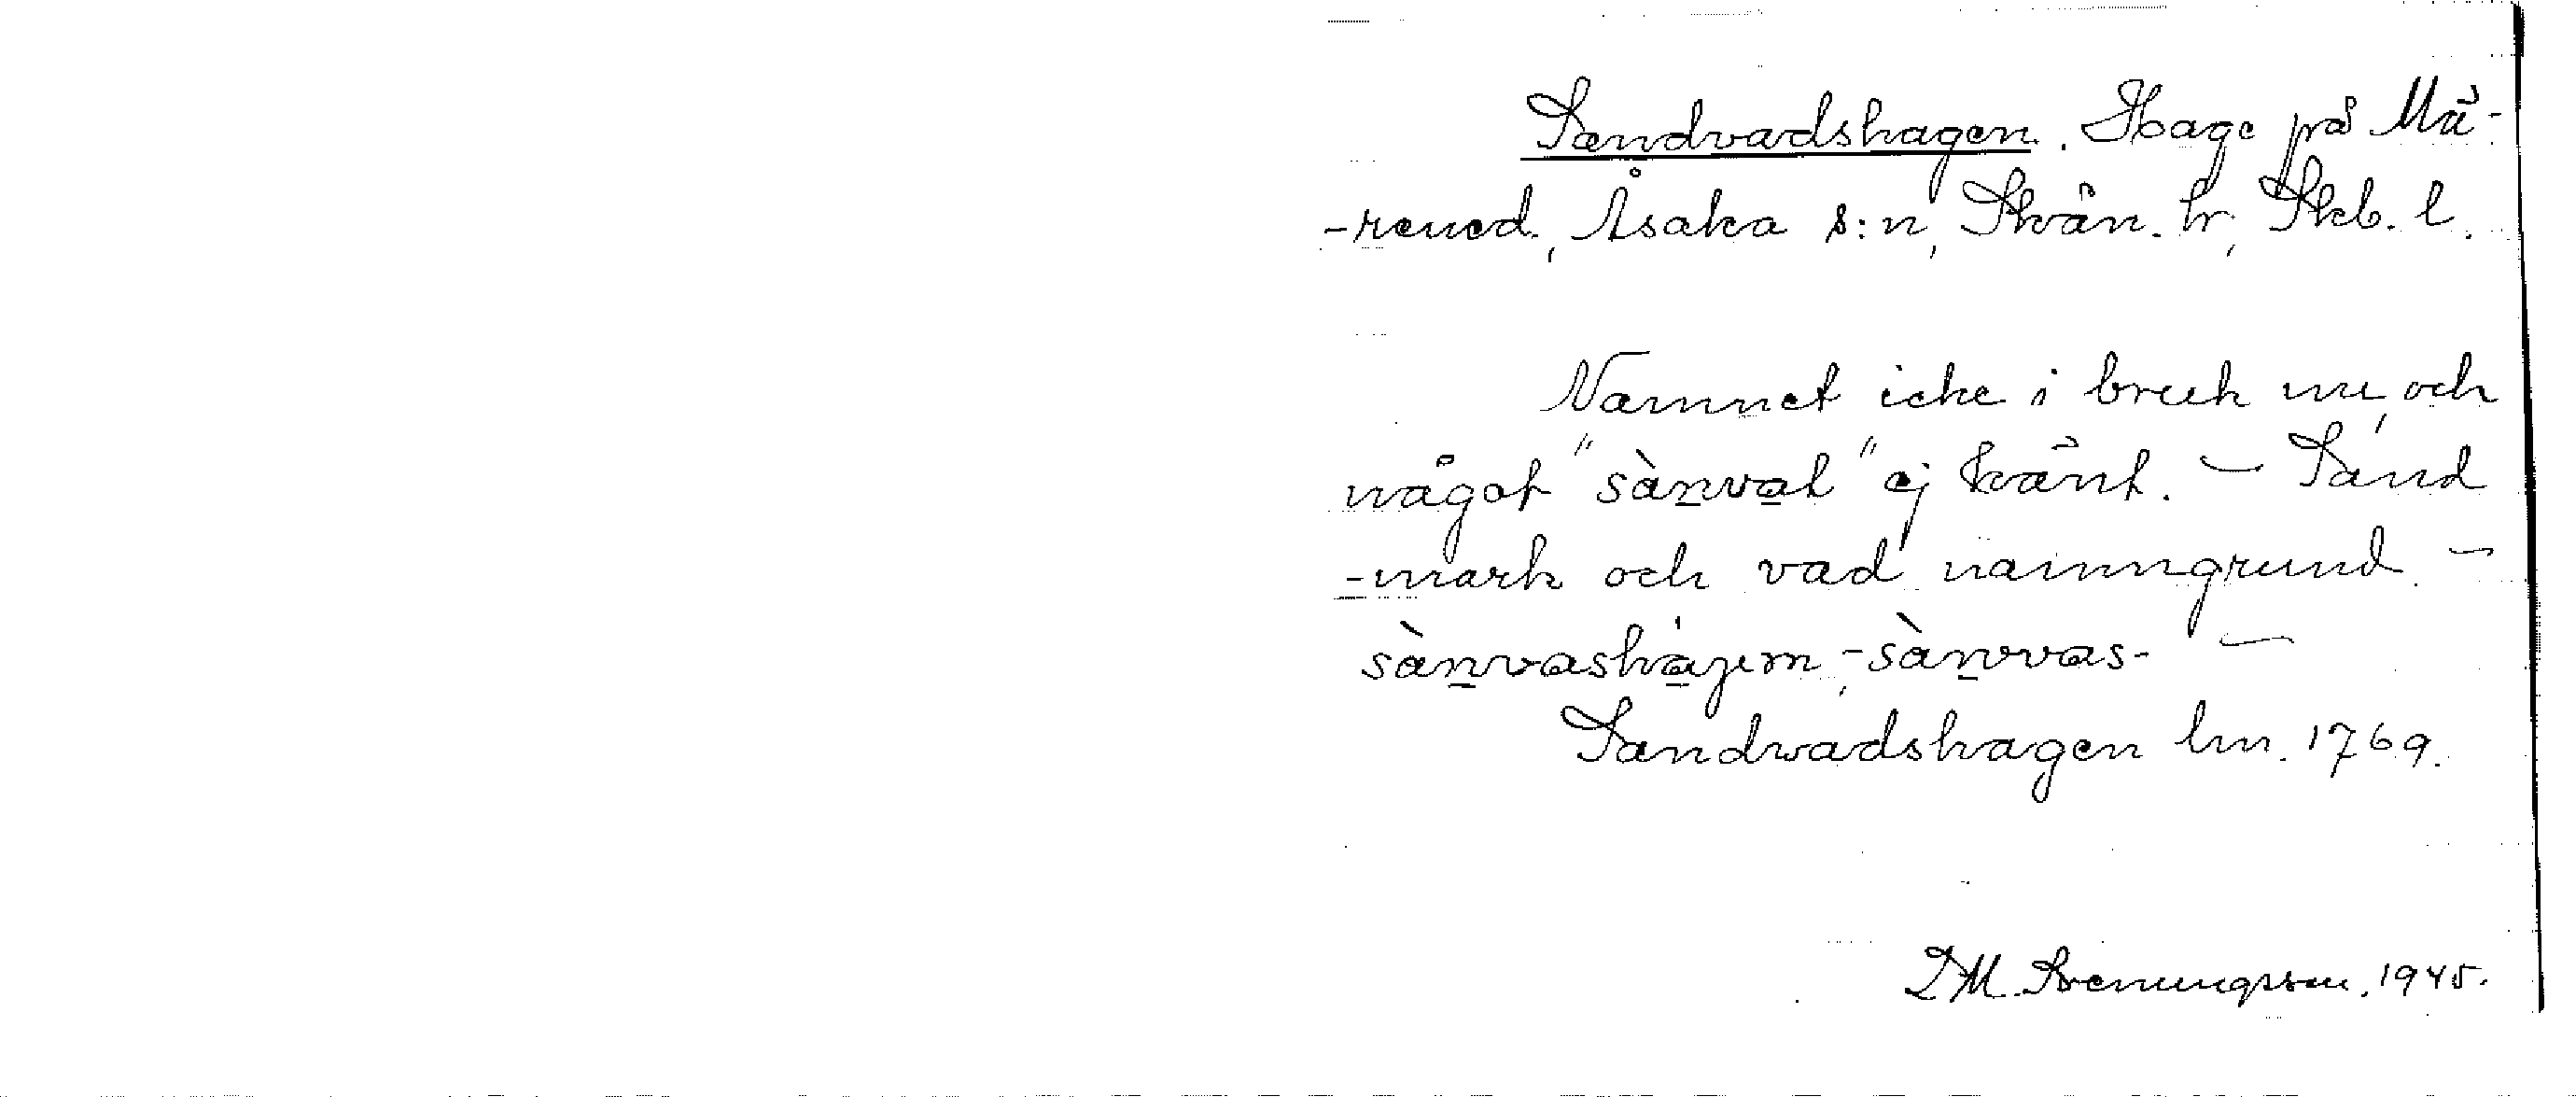 Sandvadshagen. Hage på Mu-
-rened, Åsaka s:n, Skån. hr, Skb. l.
Namnet icke i bruk nu, och
något "sànvat" ej känt. – Sand
-mark och vad namngrund. –
sànvashàgen, -sànvvas- –
Sandwadshagen lm. 1769.
D M. Svenungsson, 1945.